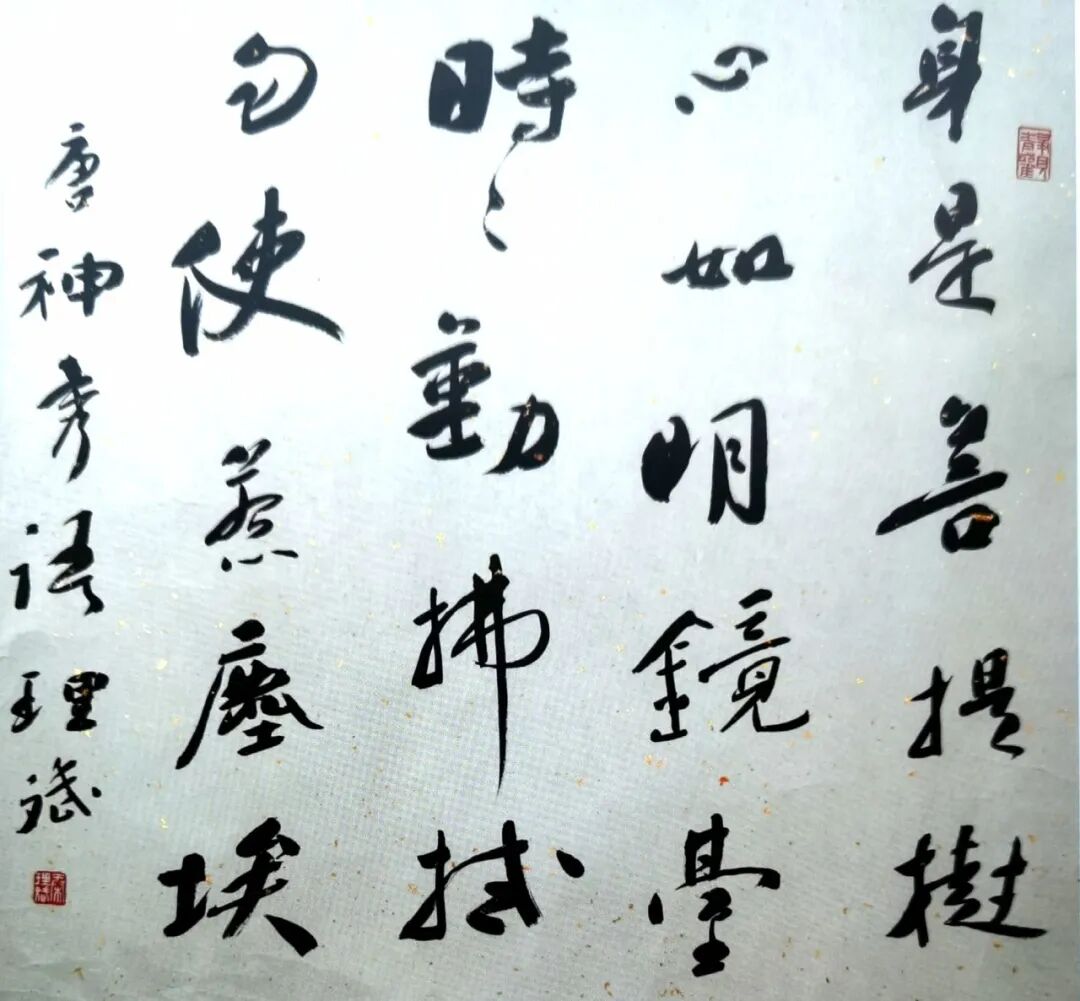 身是菩提樹
心如明鏡臺
時〻勤拂拭
勿使惹塵埃
唐神秀語理斌